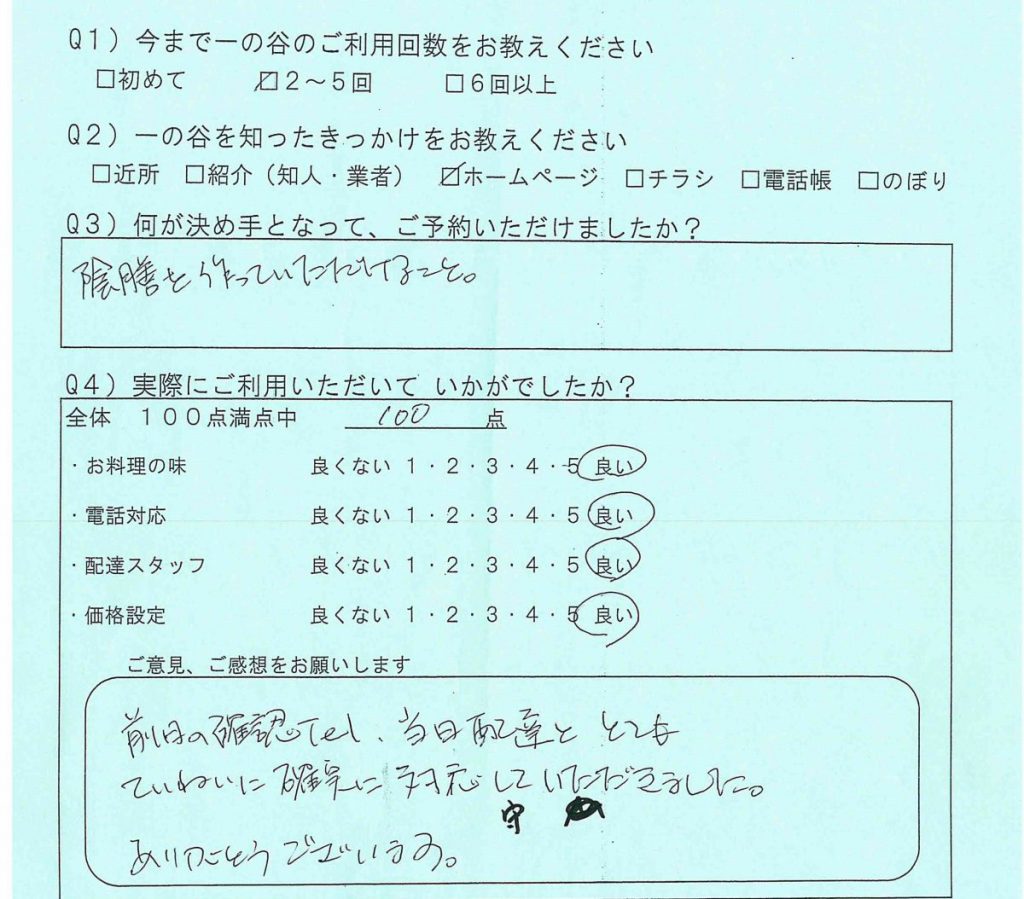 Q1）今まで一の谷のご利用回数をお教えください
□初めて ☑2～5回 □6回以上
Q2）一の谷を知ったきっかけをお教えください
□近所 □紹介（知人・業者） ☑ホームページ □チラシ □電話帳 □のぼり
Q3）何が決め手となって、ご予約いただけましたか？
陰膳を作っていただけること。
Q4）実際にご利用いただいて いかがでしたか？
全体 100点満点中 100 点
・お料理の味 良くない 1・2・3・4・5 良い
・電話対応 良くない 1・2・3・4・5 良い
・配達スタッフ 良くない 1・2・3・4・5 良い
・価格設定 良くない 1・2・3・4・5 良い
ご意見、ご感想をお願いします
前日の確認Tel、当日配達と とても
ていねいに確実に対応していただきました。
守
ありがとうございます。